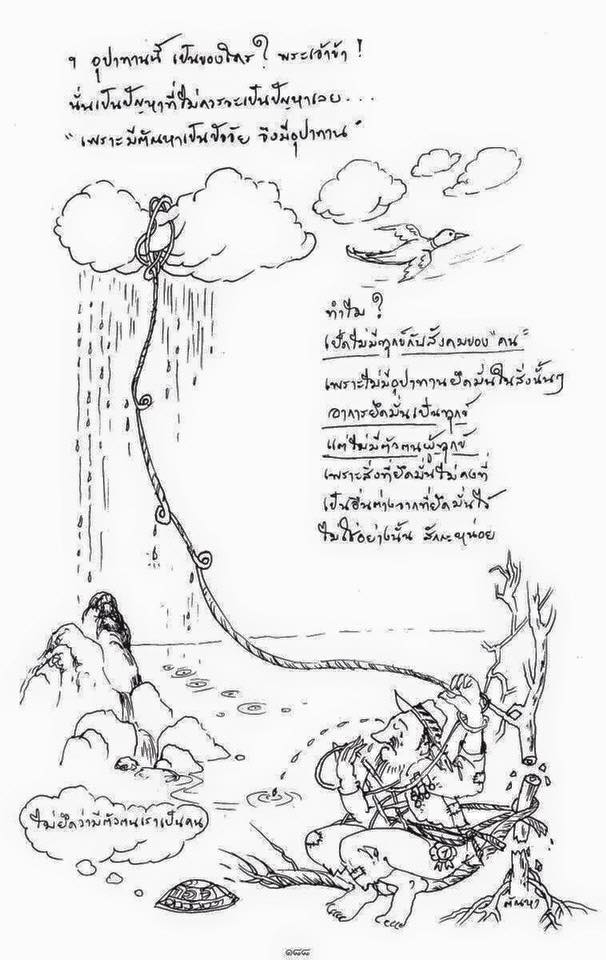 ฯ อุปาทานนี้ เป็นของใคร ? พระเจ้าข้า !
นั่นเป็นปัญหาที่ไม่ควรจะเป็นปัญหาเลย...
"เพราะมีตัณหาเป็นปัจจัย จึงมีอุปาทาน"
ทำไม ?
เป็ดไม่มีทุกข์กับสังคมของ "คน"
เพราะไม่มีอุปาทานยึดมั่นในสิ่งนั้นๆ
อาการยึดมั่นเป็นทุกข์
แต่ไม่มีตัวตนผู้ทุกข์
เพราะสิ่งที่ยึดมั่นไม่คงที่
เป็นอื่นต่างจากที่ยึดมั่นไว้
ไม่ใช่อย่างนั้น สักกะหน่อย
ไม่ยึดว่ามีตัวตนเราเป็นคน
ตัณหา
๑๘๘